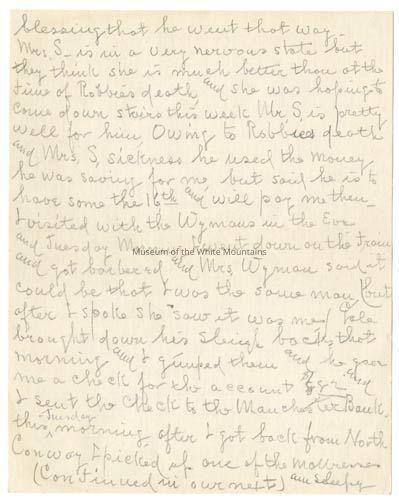 blessing that he went that way.
Mrs. S. is in a very nervous state but
they think she is much better than at the
time of Robbies death and she was hoping to
come down stairs this week Mr. S. is pretty
well for him Owing to Robbies death
and Mrs. S, sickness he used the money
he was saving for me but said he is to
have some the 16th and will pay me then.
I visited with the Wymans in the Eve
and Tuesday Morning I went down on the Train
and got barbered and Mrs. Wyman said it
could be that I was the same man but
after I spoke she saw it was me
brought down his Sleigh backs that
morning and I gimped them and he gave
me a check for the account and
I sent the Check to the Manchester Bank.
this Tuesday morning after I got back from North
Conway I picked up one of the mattresses
(Continued in our next) am sleepy
Museum of the White Mountains